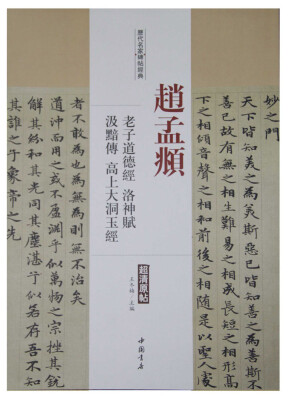 妙之門
天下皆知美之為美斯惡已皆知善之為善斯不
善已故有無之相生難易之相成長短之相形高
下之相傾音聲之相和前後之相隨是以聖人處
歷代名家碑帖經典
趙孟頫
老子道德經 洛神賦
汲黯傳 高上大洞玉經
超清原帖
王冬梅 主編
中國書店
者不敢為也為無為則無不治矣
道沖而用之或不盈淵乎似萬物之宗挫其銳
解其紛和其光同其塵湛兮似若存吾不知
其誰之子象帝之先